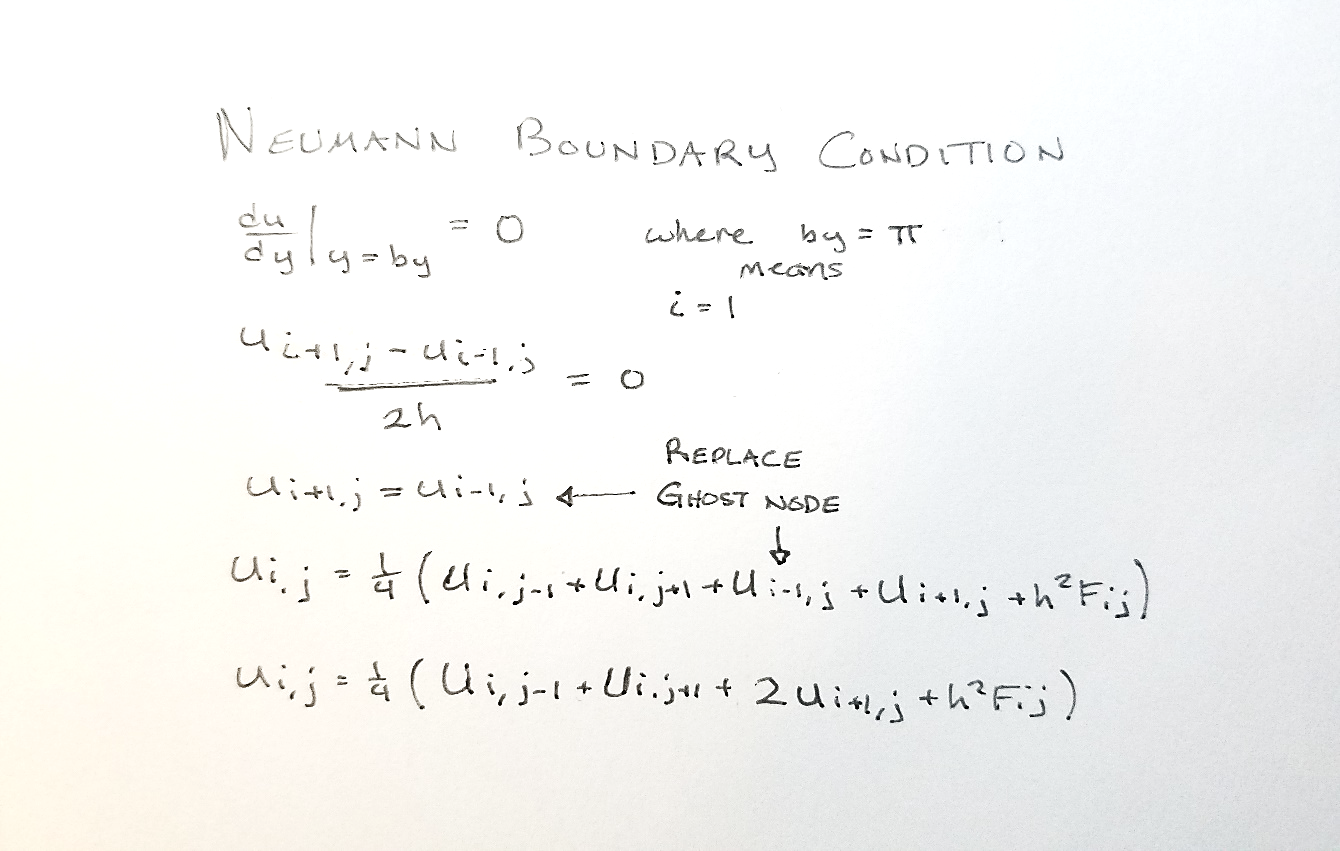 NEUMANN BOUNDARY CONDITION
du/dy |y=by = 0 where by = π
means
i = 1
(ui+1,j - ui-1,j)/2h = 0
REPLACE
ui+1,j = ui-1,j ← GHOST NODE
↓
ui,j = 1/4 (ui,j-1 + ui,j+1 + ui-1,j + ui+1,j + h²Fij)
ui,j = 1/4 (ui,j-1 + ui,j+1 + 2ui+1,j + h²Fij)